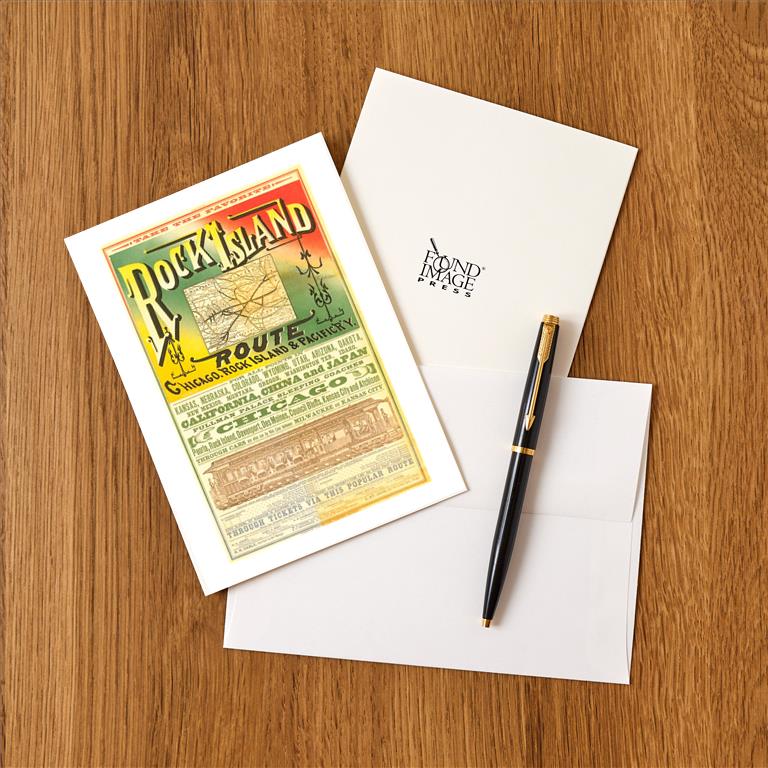 TAKE THE FAVORITE!
ROCK ISLAND
ROUTE
CHICAGO, ROCK ISLAND & PACIFIC R'Y.
FOR ALL POINTS IN
KANSAS, NEBRASKA, COLORADO, WYOMING, UTAH, ARIZONA, DAKOTA,
NEW MEXICO, MONTANA, OREGON, WASHINGTON TER., IDAHO,
CALIFORNIA, CHINA and JAPAN
PULLMAN PALACE SLEEPING COACHES
CHICAGO
Peoria, Rock Island, Davenport, Des Moines, Council Bluffs, Kansas City and Atchison
THROUGH CARS MILWAUKEE to KANSAS CITY
THROUGH TICKETS VIA THIS POPULAR ROUTE
FOUND®
IMAGE
PRESS